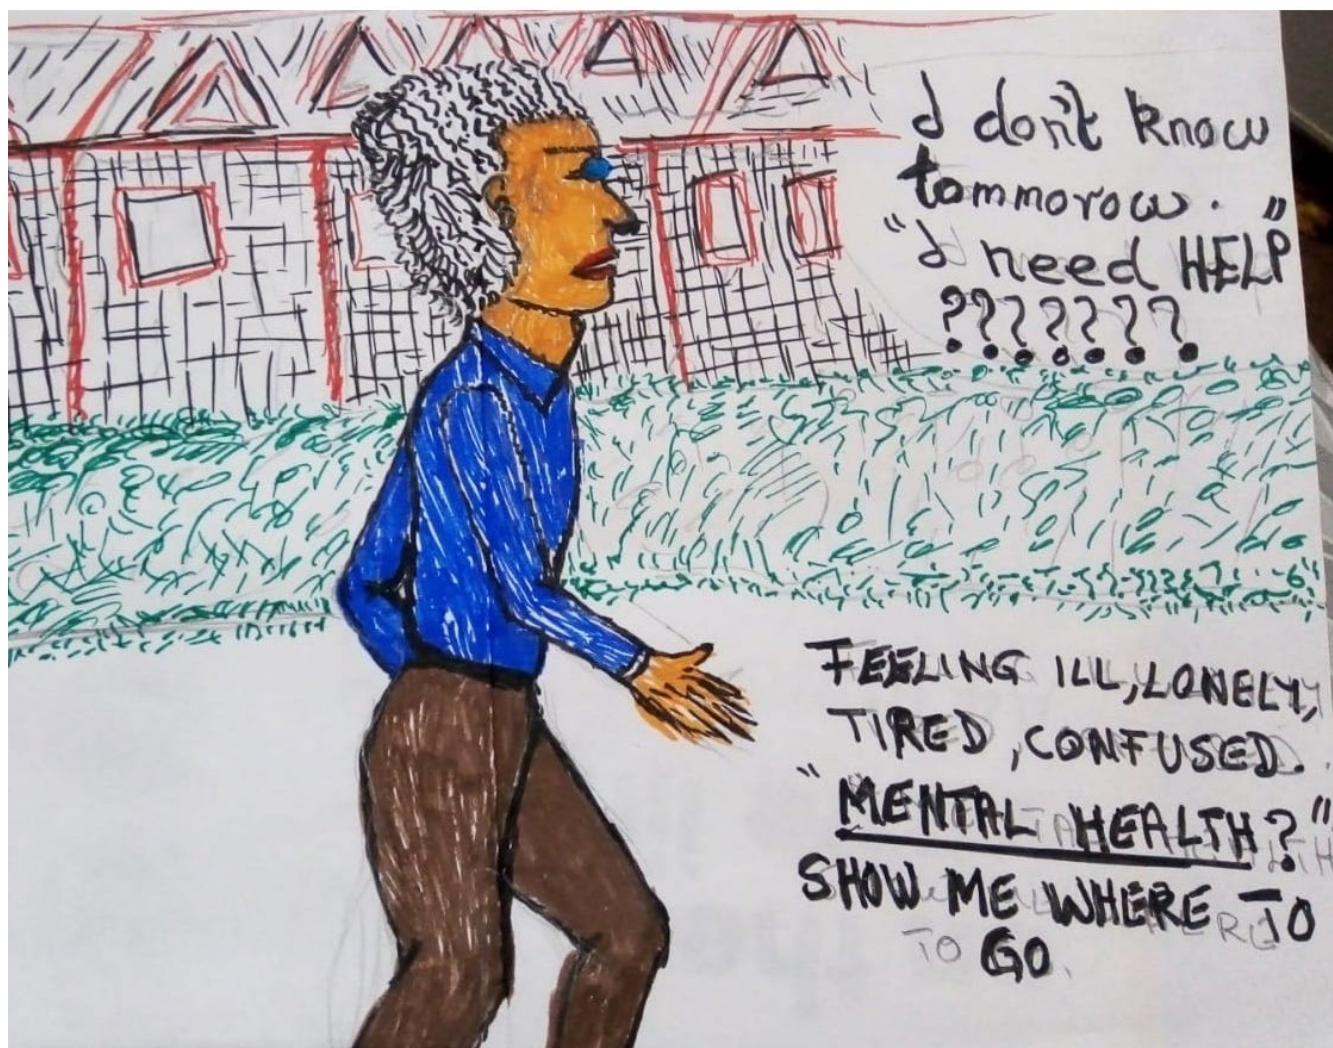 I don't know
tommorow.
"I need HELP"
???????
FEELING ILL, LONELY,
TIRED, CONFUSED.
"MENTAL HEALTH?"
SHOW ME WHERE TO
GO.